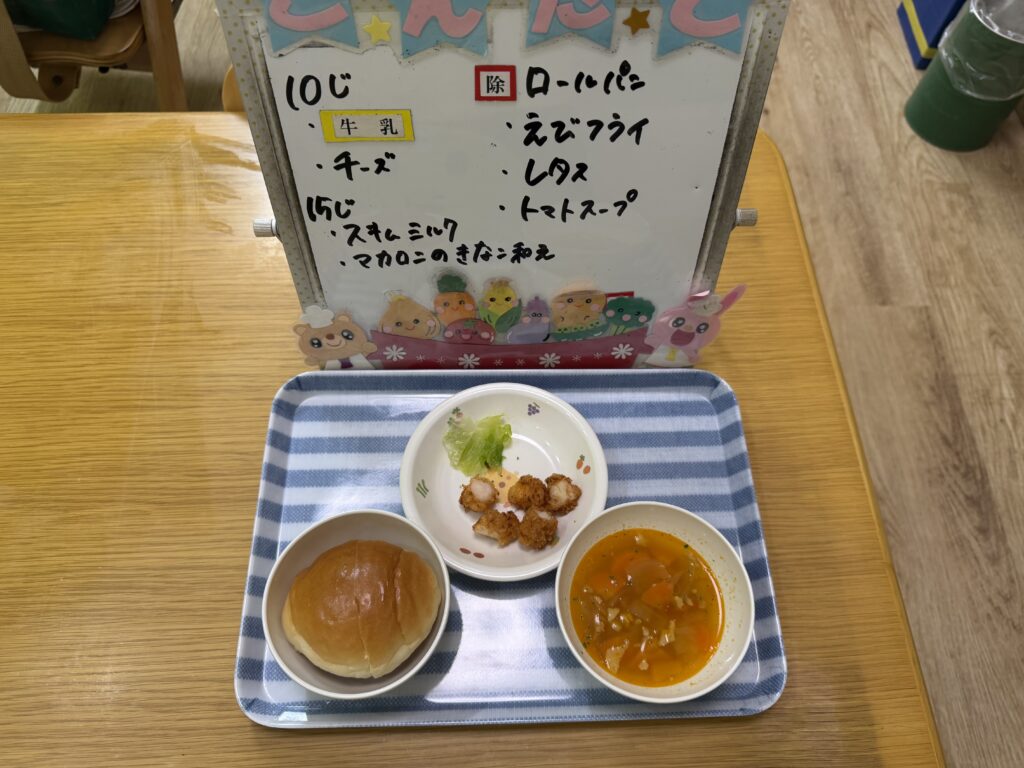 こんだて
10じ
・牛乳
・チーズ
15じ
・スキムミルク
・マカロニのきなこ和え
除 ロールパン
・えびフライ
・レタス
・トマトスープ